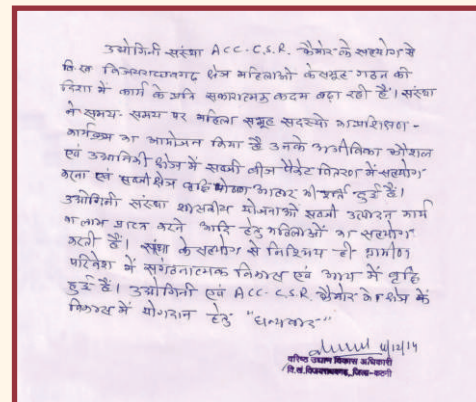 उद्योगिनी संस्था ACC-C.S.R. कैमोर के सहयोग से
वि.ख विजयराघवगढ़ क्षेत्र महिलाओं के समूह गठन की
दिशा में कार्य के प्रति सकारात्मक कदम बढ़ा रही है। संस्था
ने समय-समय पर महिला समूह सदस्यों का प्रशिक्षण-
कार्यक्रम का आयोजन किया है उनके आजीविका कौशल
एवं उद्यानिकी क्षेत्र में सब्जी बीज पैकेट वितरण में सहयोग
करना एवं सब्जी क्षेत्र वृद्धि आहार की हुई है।
उद्योगिनी संस्था शासकीय योजनाओं सब्जी उत्पादन कार्य
का लाभ प्राप्त करने आदि हेतु महिलाओं का सहयोग
करती हैं। संस्था के सहयोग से निश्चिय ही ग्रामीण
परिवेश में संगठनात्मक विकास एवं आय में वृद्धि
हुई है। उद्योगिनी एवं ACC-C.S.R. कैमोर का क्षेत्र में
विकास में योगदान हेतु "धन्यवाद"
4/12/14
वरिष्ठ उद्यान विकास अधिकारी
वि.खं.विजयराघवगढ़, जिला-कटनी